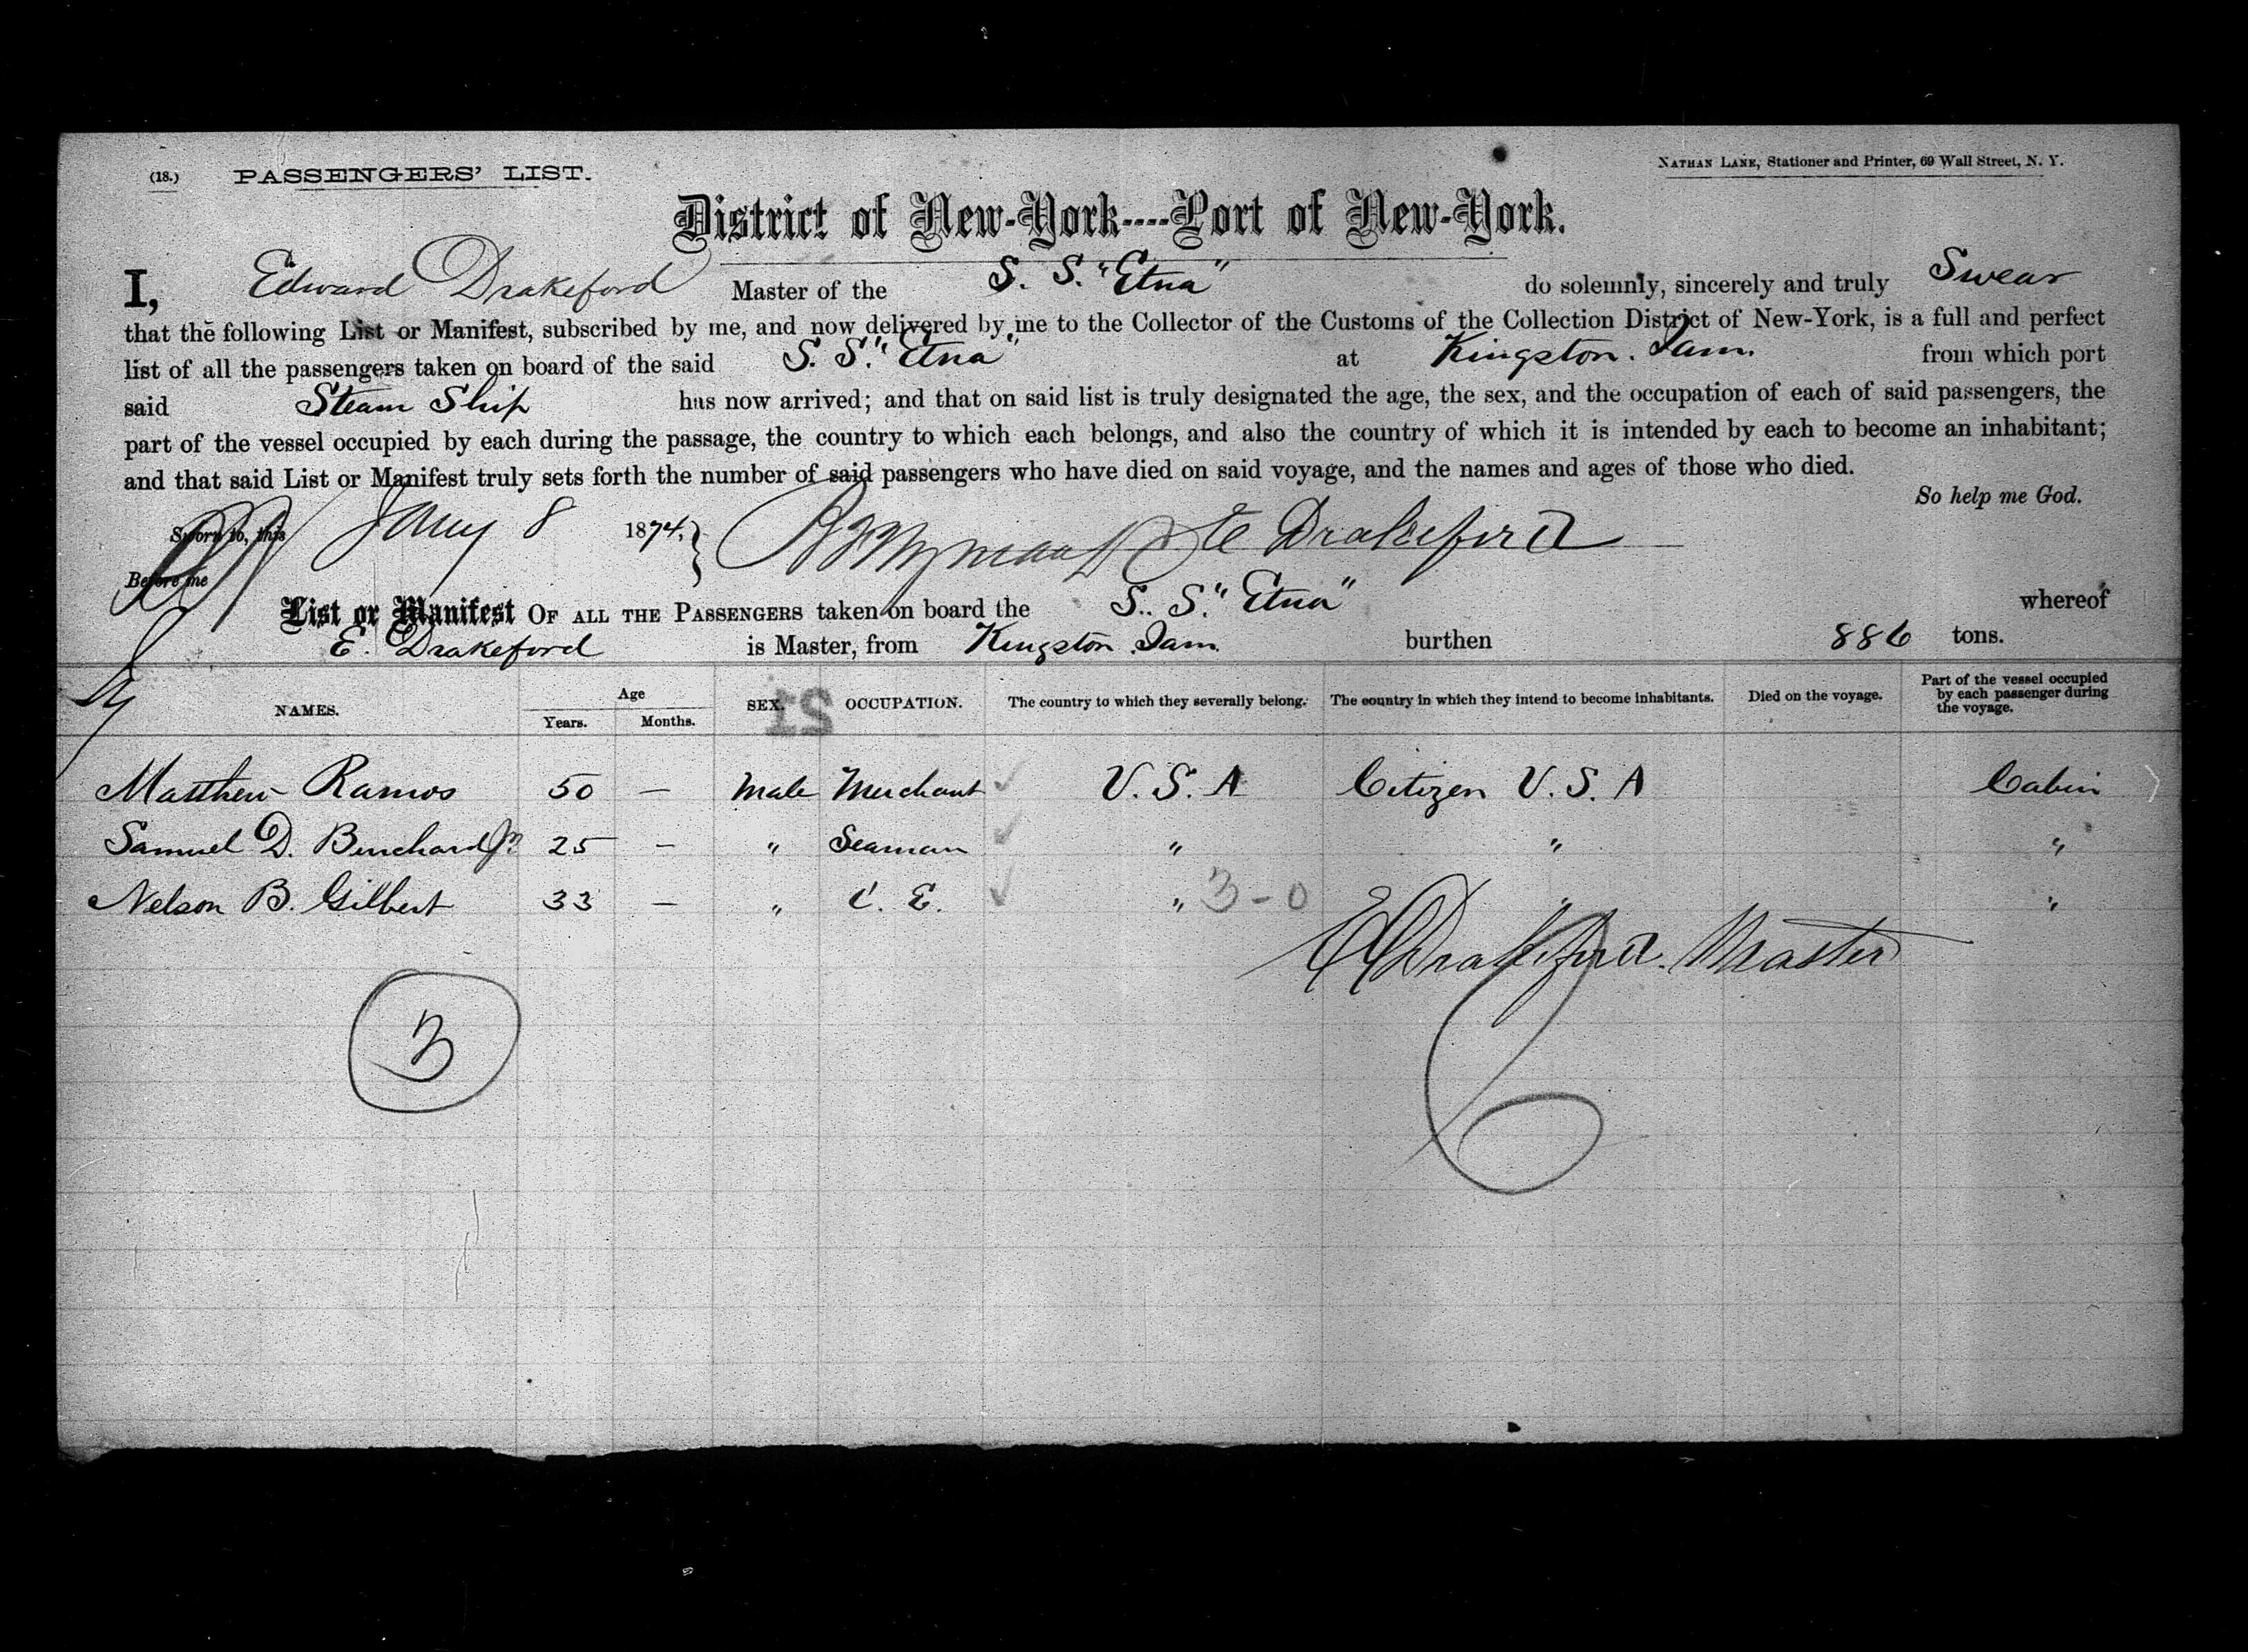 (18.) PASSENGERS' LIST.
NATHAN LANE, Stationer and Printer, 69 Wall Street, N. Y.
District of New-York----Port of New-York.
I, Edward Drakeford Master of the S. S. "Etna" do solemnly, sincerely and truly Swear
that the following List or Manifest, subscribed by me, and now delivered by me to the Collector of the Customs of the Collection District of New-York, is a full and perfect
list of all the passengers taken on board of the said S. S. "Etna" at Kingston. Jam. from which port
said Steam Ship has now arrived; and that on said list is truly designated the age, the sex, and the occupation of each of said passengers, the
part of the vessel occupied by each during the passage, the country to which each belongs, and also the country of which it is intended by each to become an inhabitant;
and that said List or Manifest truly sets forth the number of said passengers who have died on said voyage, and the names and ages of those who died.
So help me God.
Sworn to, this Jany 8 1874. Drakeford
Before me
List or Manifest OF ALL THE PASSENGERS taken on board the S. S. "Etna" whereof
E. Drakeford is Master, from Kingston Jam. burthen 886 tons.
NAMES. Age Years. Months. SEX. OCCUPATION. The country to which they severally belong. The country in which they intend to become inhabitants. Died on the voyage. Part of the vessel occupied by each passenger during the voyage.
21
Matthew Ramos 50 — Male Merchant U. S. A Citizen U. S. A Cabin
Samuel D. Burchard Jr 25 — " Seaman " " "
Nelson B. Gilbert 33 — " C. E. " 3-0 " "
E Drakeford. Master
3